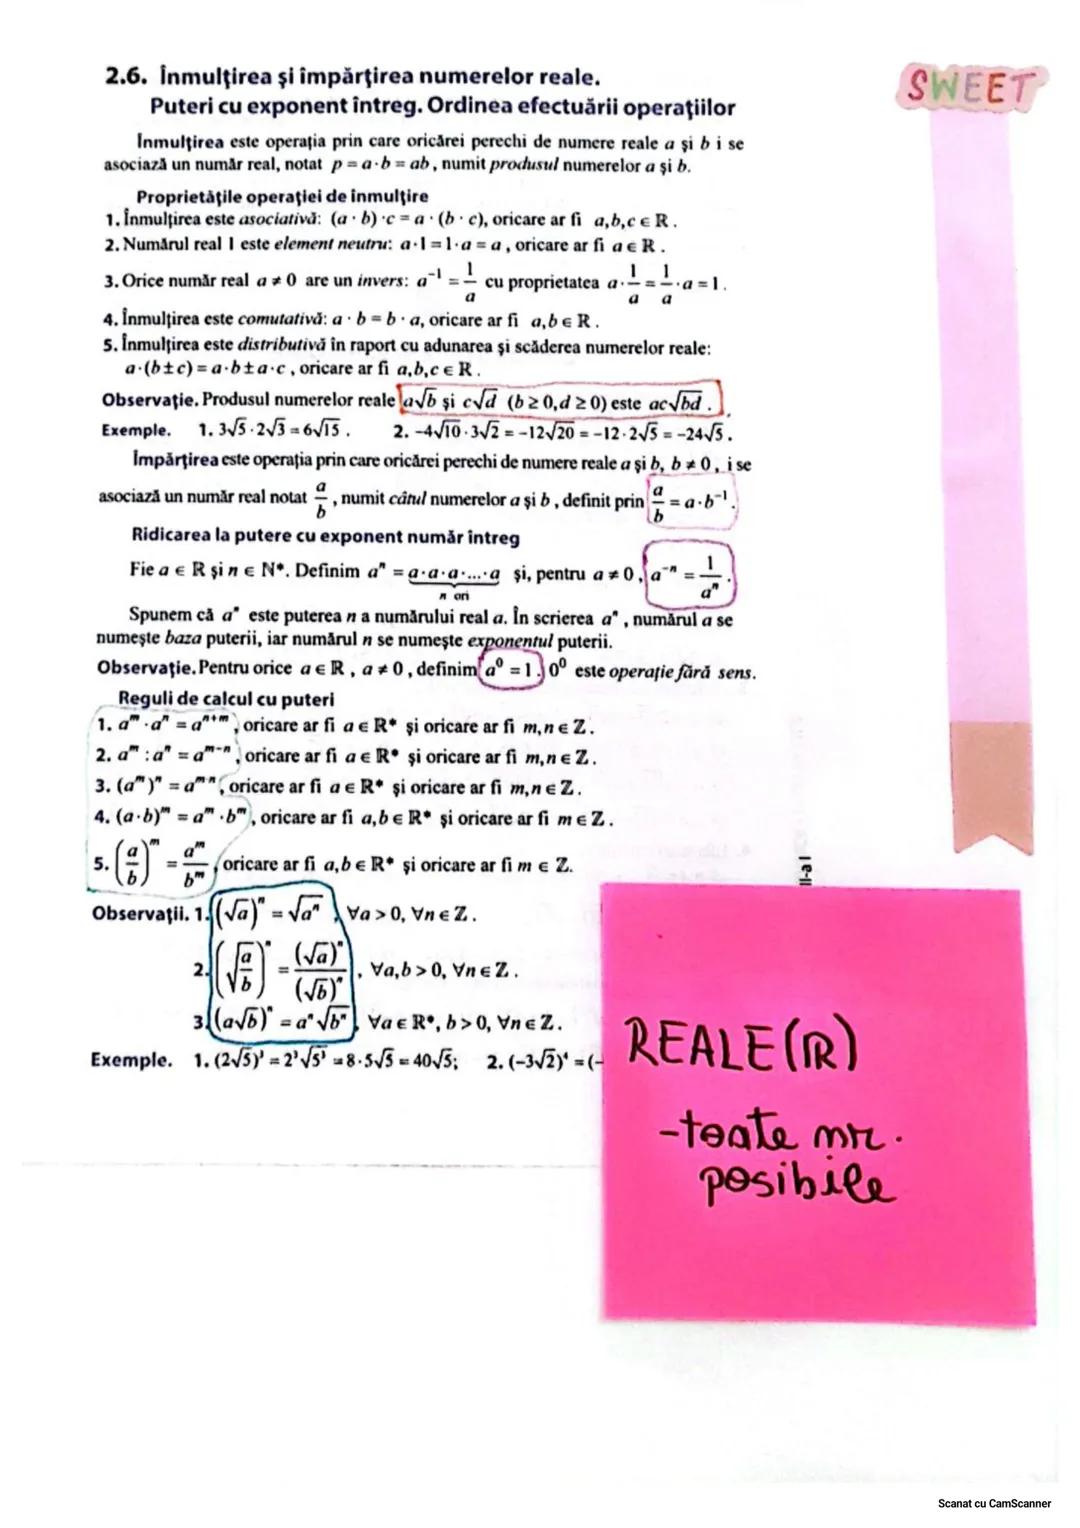 SWEET
2.6. Înmulțirea și împărțirea numerelor reale.
Puteri cu exponent întreg. Ordinea efectuării operațiilor
Înmulțirea este operația prin care oricărei perechi de numere reale a și b i se
asociază un număr real, notat p = a·b = ab, numit produsul numerelor a și b.
Proprietățile operației de înmulțire
1. Înmulțirea este asociativă: (a · b) · c = a · (b · c), oricare ar fi a,b,c ∈ R.
2. Numărul real 1 este element neutru: a·1 = 1·a = a, oricare ar fi a ∈ R.
3. Orice număr real a ≠ 0 are un invers: a⁻¹ = 1/a cu proprietatea a·1/a = 1/a·a = 1.
4. Înmulțirea este comutativă: a · b = b · a, oricare ar fi a,b ∈ R.
5. Înmulțirea este distributivă în raport cu adunarea și scăderea numerelor reale:
a·(b±c) = a·b±a·c, oricare ar fi a,b,c ∈ R.
Observație. Produsul numerelor reale a√b și c√d (b ≥ 0, d ≥ 0) este ac√bd.
Exemple. 1. 3√5·2√3 = 6√15. 2. -4√10·3√2 = -12√20 = -12·2√5 = -24√5.
Împărțirea este operația prin care oricărei perechi de numere reale a și b, b ≠ 0, i se
asociază un număr real notat a/b, numit câtul numerelor a și b, definit prin a/b = a·b⁻¹.
Ridicarea la putere cu exponent număr întreg
Fie a ∈ R și n ∈ N*. Definim aⁿ = a·a·a·...·a și, pentru a ≠ 0, a⁻ⁿ = 1/aⁿ.
n ori
Spunem că aⁿ este puterea n a numărului real a. În scrierea aⁿ, numărul a se
numește baza puterii, iar numărul n se numește exponentul puterii.
Observație. Pentru orice a ∈ R, a ≠ 0, definim a⁰ = 1. 0⁰ este operație fără sens.
Reguli de calcul cu puteri
1. aᵐ·aⁿ = aⁿ⁺ᵐ, oricare ar fi a ∈ R* și oricare ar fi m,n ∈ Z.
2. aᵐ : aⁿ = aᵐ⁻ⁿ, oricare ar fi a ∈ R* și oricare ar fi m,n ∈ Z.
3. (aᵐ)ⁿ = aᵐ·ⁿ, oricare ar fi a ∈ R* și oricare ar fi m,n ∈ Z.
4. (a·b)ᵐ = aᵐ·bᵐ, oricare ar fi a,b ∈ R* și oricare ar fi m ∈ Z.
5. (a/b)ᵐ = aᵐ/bᵐ, oricare ar fi a,b ∈ R* și oricare ar fi m ∈ Z.
Observații. 1. (√a)ⁿ = √aⁿ, ∀a > 0, ∀n ∈ Z.
2. (√a/b)ⁿ = (√a)ⁿ/(√b)ⁿ, ∀a,b > 0, ∀n ∈ Z.
3. (a√b)ⁿ = aⁿ√bⁿ, ∀a ∈ R*, b > 0, ∀n ∈ Z.
Exemple. 1. (2√5)³ = 2³√5³ = 8·5√5 = 40√5; 2. (-3√2)⁴ = (-
REALE (ℝ)
-toate nr.
posibile
Scanat cu CamScanner